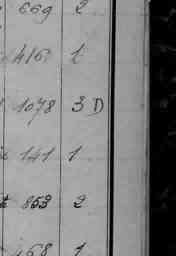 669 2
416 1
1078 3 D
141 1
853 2
168 1